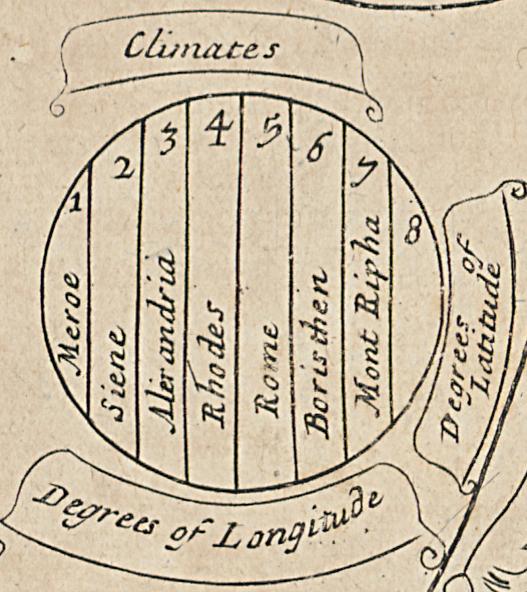 Climates
1
2
3
4
5
6
7
8
Meroe
Siene
Alexandria
Rhodes
Rome
Boristhen
Mont Ripha
Degrees of
Latitude
Degrees of Longitude